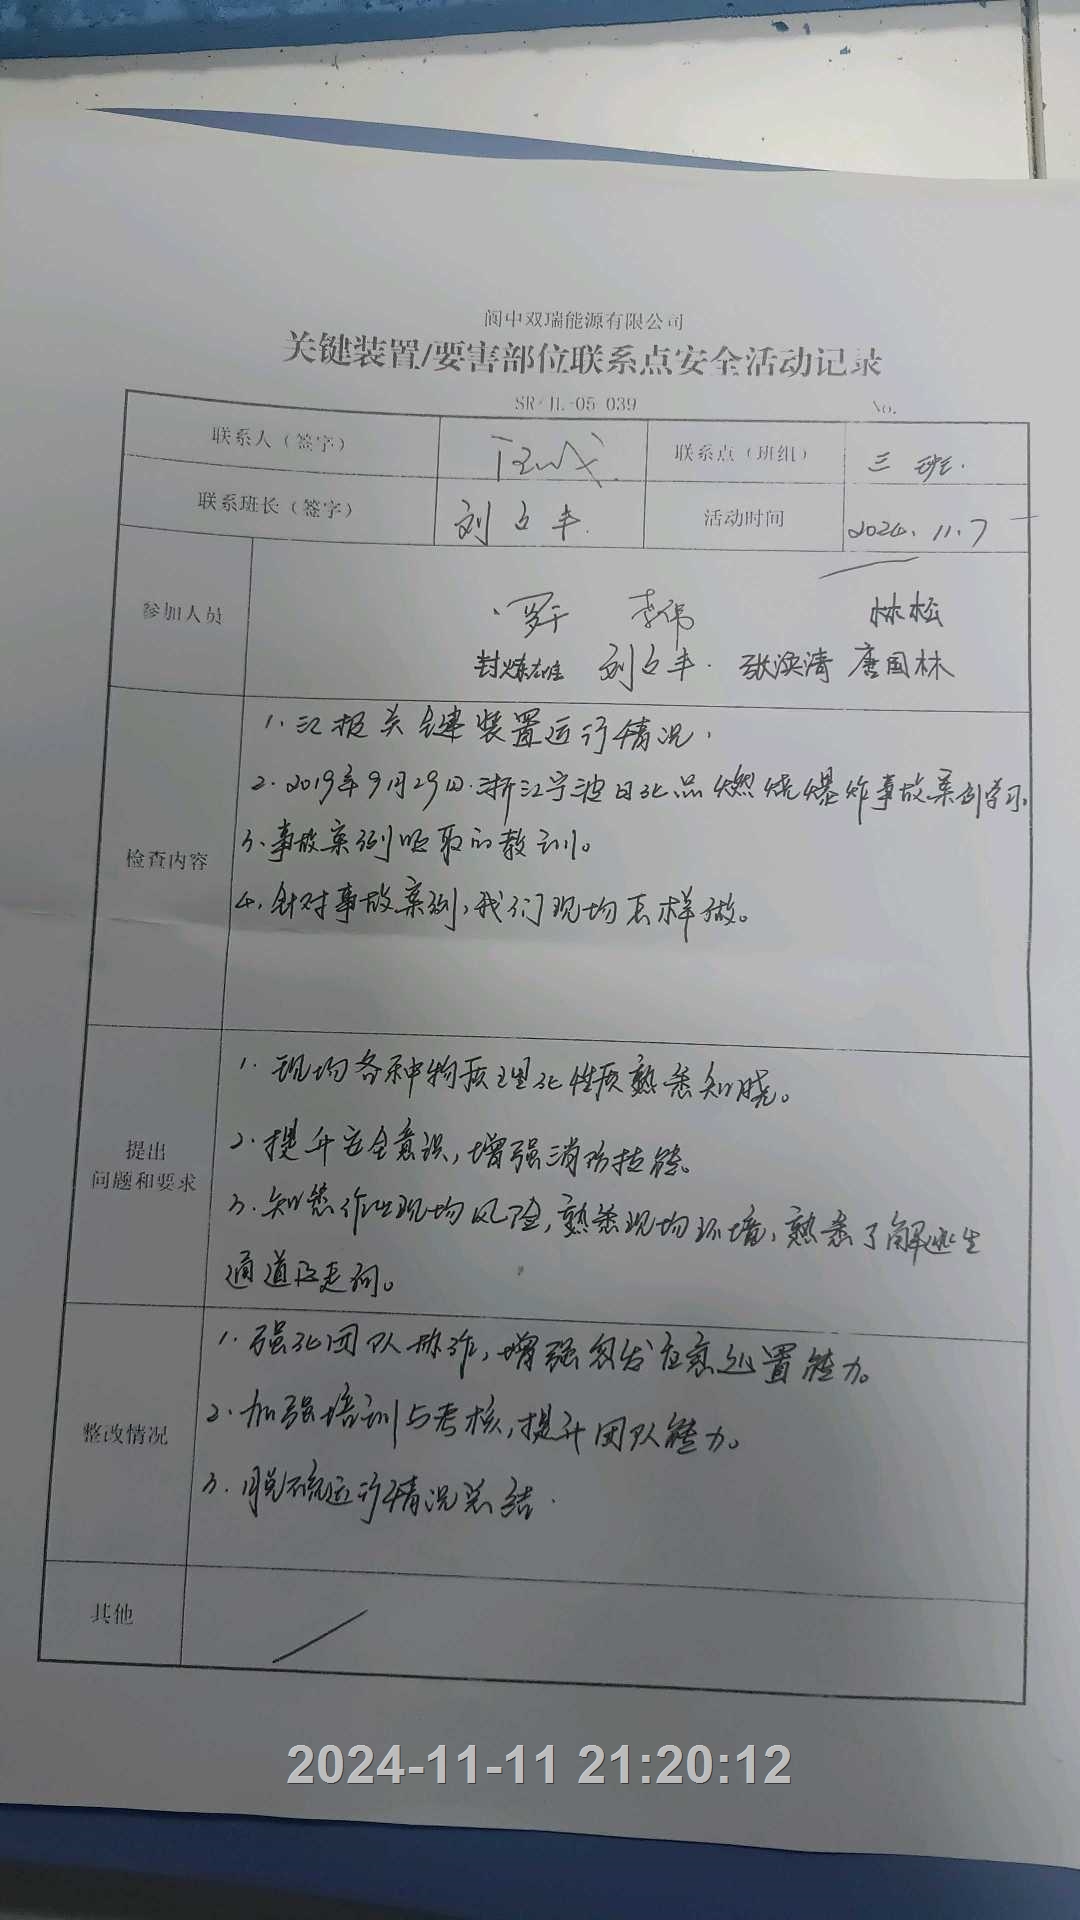 阆中双瑞能源有限公司
关键装置/要害部位联系点安全活动记录
SR-JL-05-039 No.
联系人（签字） 联系点（班组） 三班.
联系班长（签字） 刘占丰. 活动时间 2024.11.7
参加人员 罗平 李伟 林松
封炼雄 刘占丰. 张洪清 唐国林
检查内容
1.汇报关键装置运行情况.
2.2019年9月29日.浙江宁波日化品燃烧爆炸事故案例学习.
3.事故案例吸取的教训。
4.针对事故案例,我们现场怎样做。
提出
问题和要求
1.现场各种物质理化性质熟悉知晓。
2.提升安全意识,增强消防技能。
3.知悉作业现场风险,熟悉现场环境,熟悉了解逃生
通道及走向。
整改情况
1.强化团队协作,增强突发应急处置能力。
2.加强培训与考核,提升团队能力。
3.脱硫运行情况总结.
其他 /
2024-11-11 21:20:12